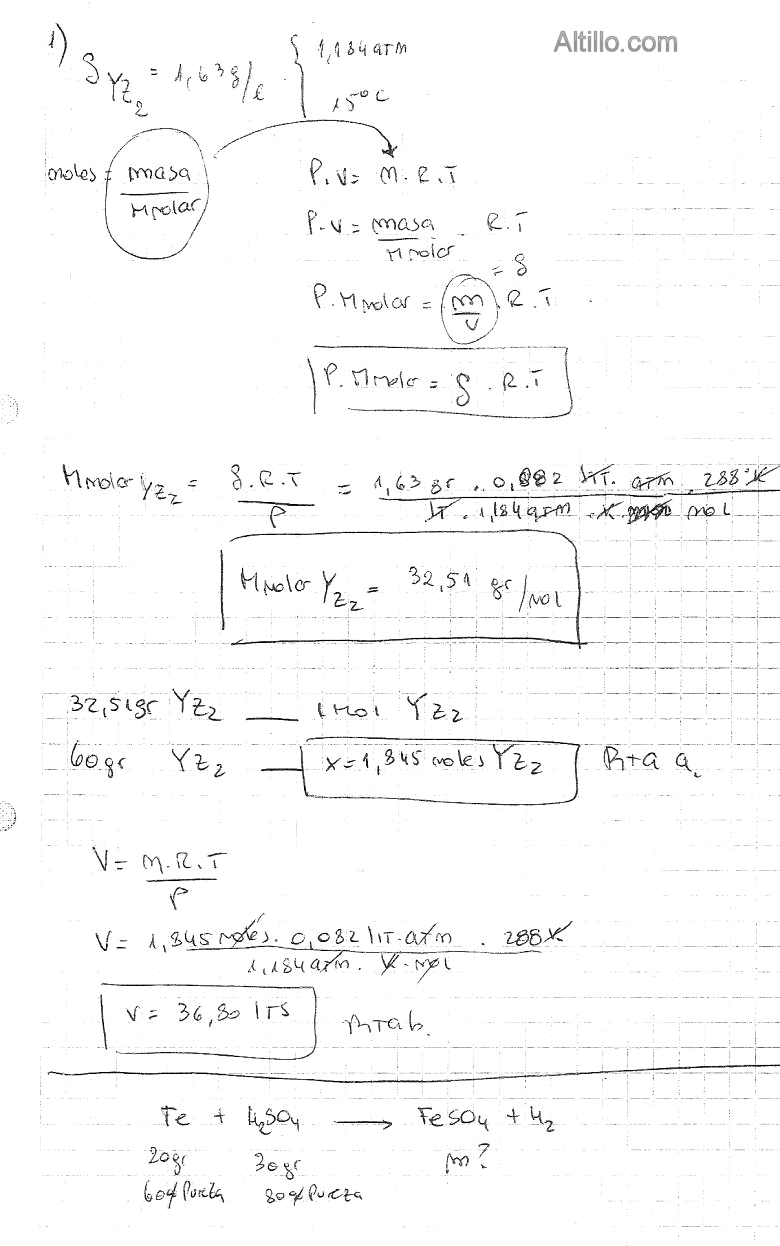 Altillo.com
1) δ YZ₂ = 1,63 g/l { 1,184 atm
15°C
moles = masa / Mmolar
P.V = m.R.T
P.V = masa / Mmolar . R.T
P.Mmolar = m / V . R.T = δ
P.Mmolar = δ . R.T
Mmolar YZ₂ = δ.R.T / P = 1,63 gr . 0,082 lit. atm . 288°K / lt . 1,184 atm . K mol
Mmolar YZ₂ = 32,51 gr/mol
32,51gr YZ₂ ___ 1 mol YZ₂
60gr YZ₂ ___ x = 1,845 moles YZ₂ Rta a.
V = m.R.T / P
V = 1,845 moles. 0,082 lit.atm . 288K / 1,184 atm. K.mol
V = 36,80 lts Rta b.
Fe + H₂SO₄ ⟶ FeSO₄ + H₂
20gr 30gr m?
60% Pureza 80% Pureza